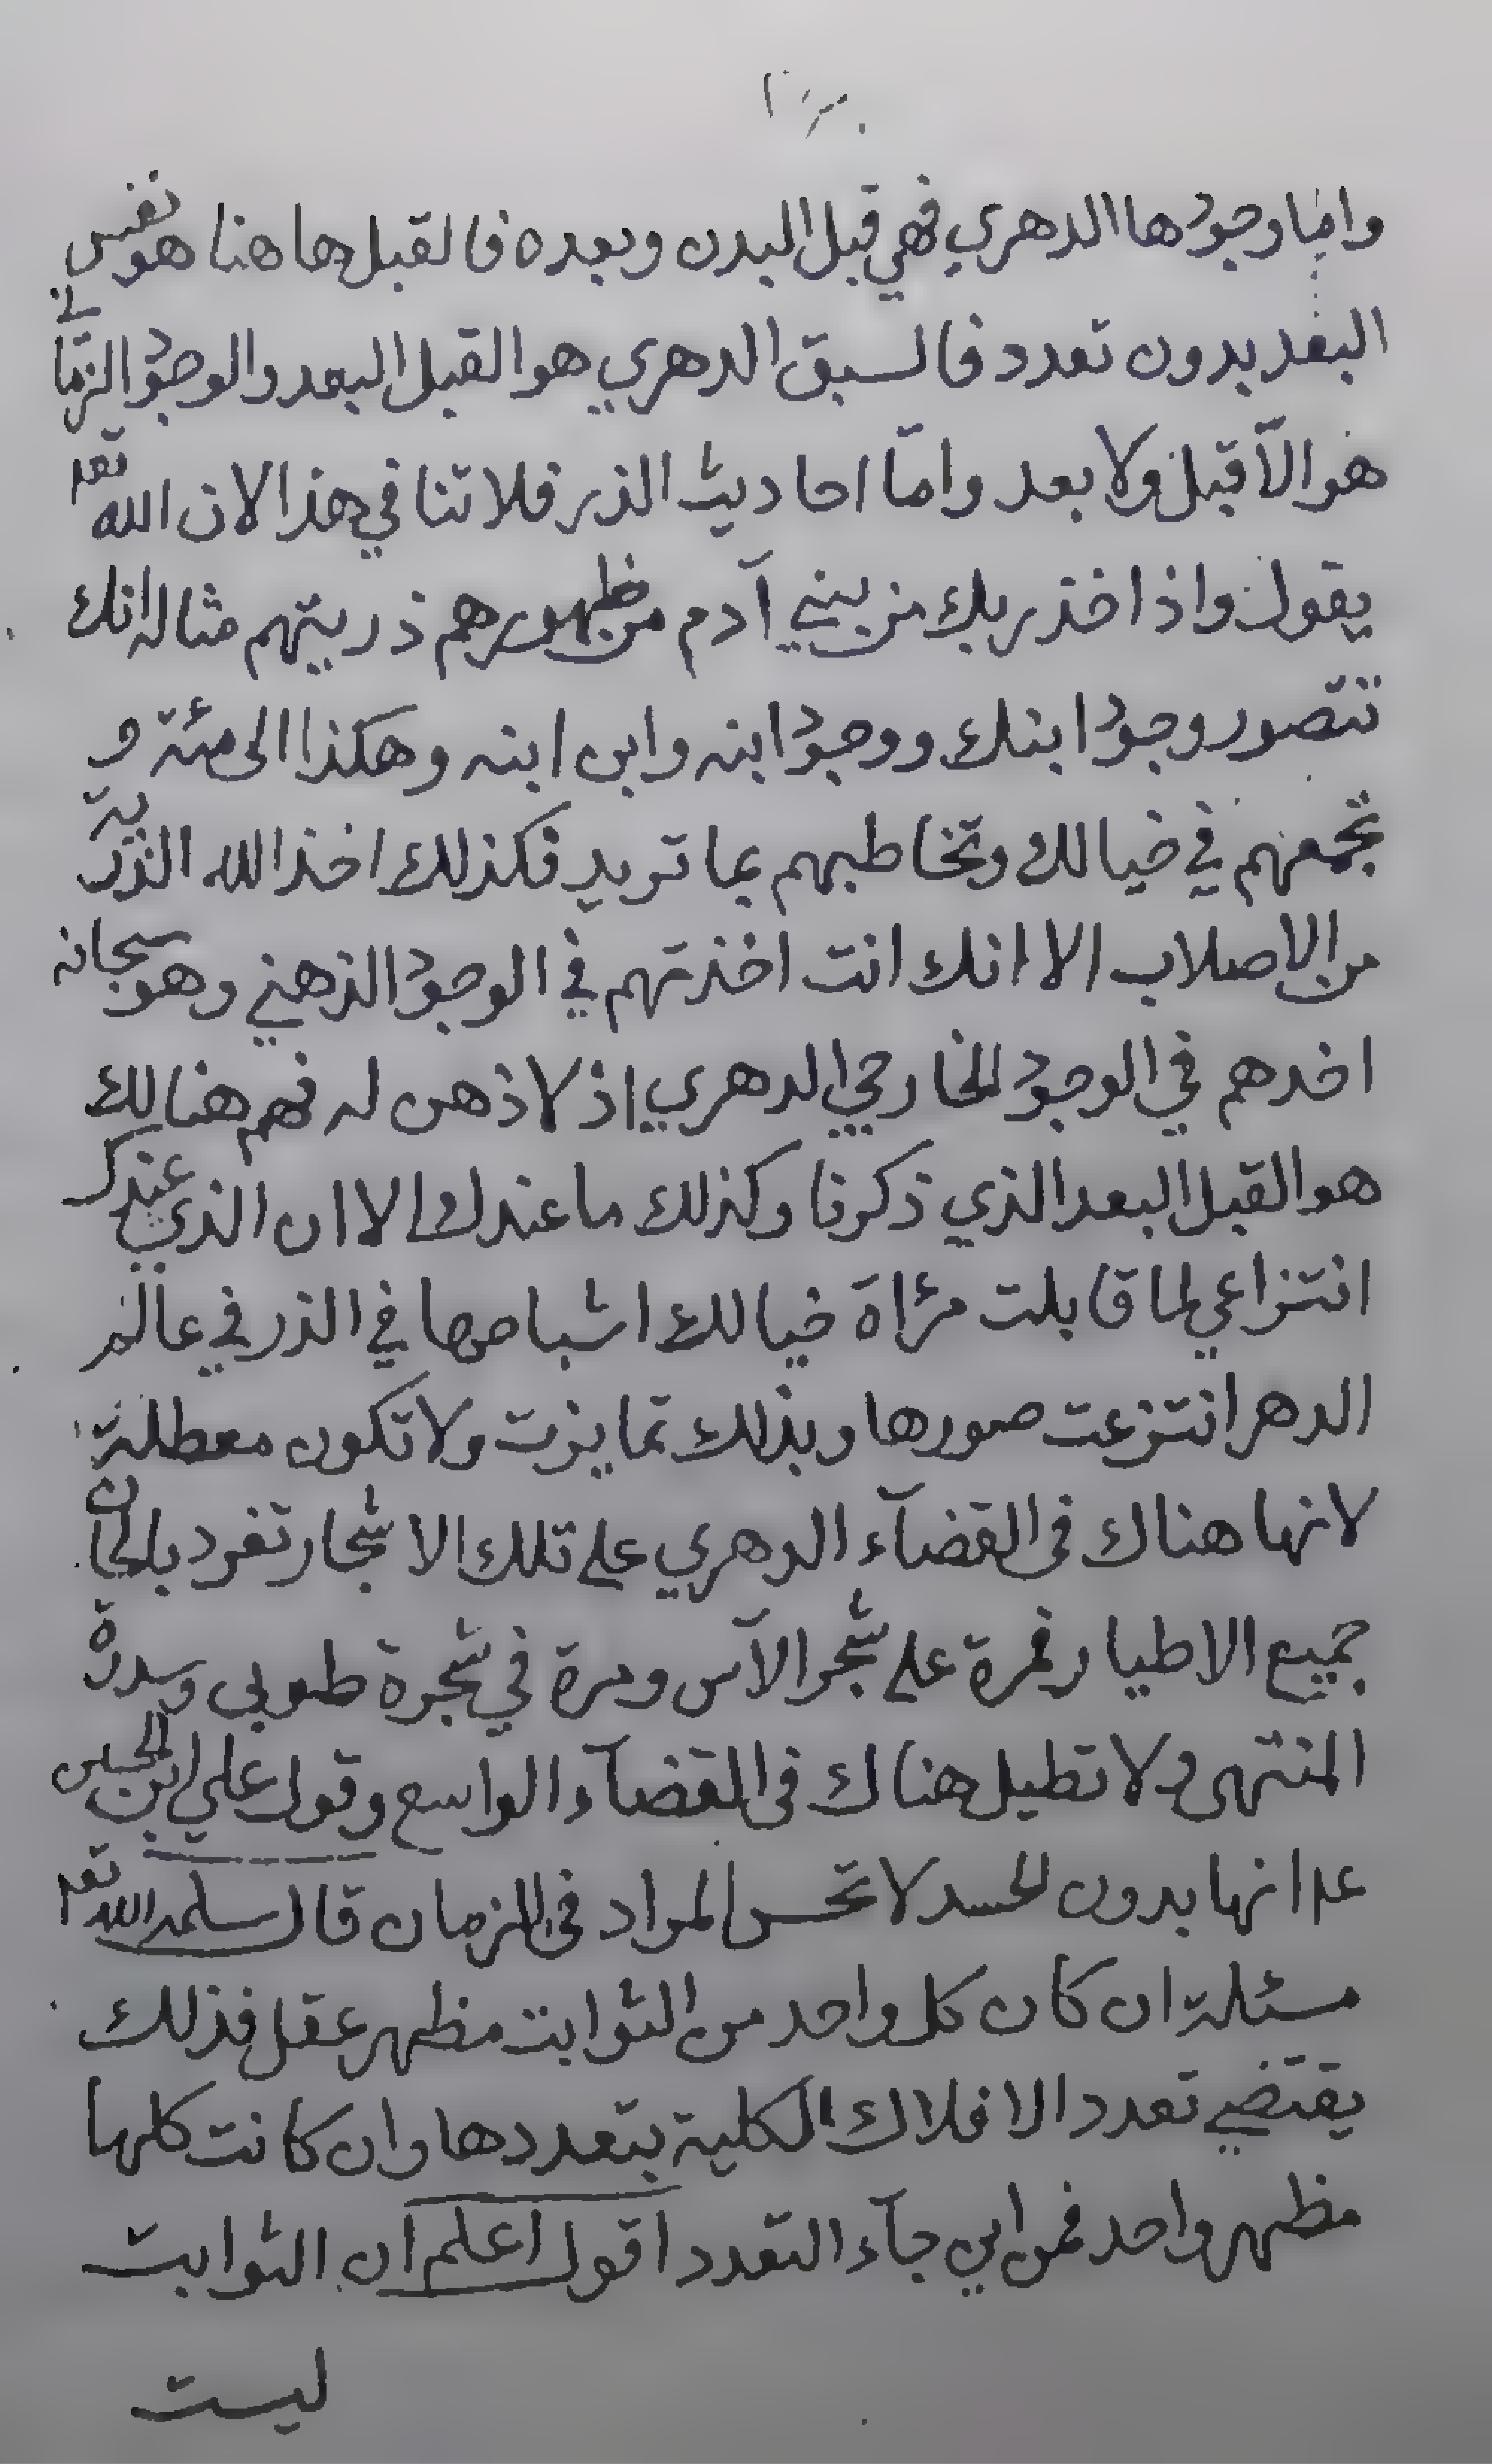 واما وجودها الدهري فهي قبل البدن وبعده فالقبل هاهنا هو نفس
البعد بدون تعدد فالسبق الدهري هو القبل البعد والوجود الزماني
هو الآ قبل ولا بعد وامّا احاديث الذر فلا تنافي هذا لان الله تعه
يقول واذ اخذ ربك من بني آدم من ظهورهم ذريتهم مثاله انك
تتصور وجود ابنك ووجود ابنه وابن ابنه وهكذا الى مئة و
تجمعهم في خيالك وتخاطبهم بما تريد فكذلك اخذ الله الذرية
من الاصلاب الا انك انت اخذتهم في الوجود الذهني وهو سبحانه
اخدهم في الوجود الخارجي الدهري اذ لا ذهن له فهم هنالك
هو القبل البعد الذي ذكرنا وكذلك ما عندك الا ان الذي عندك
انتزاعي لما قابلت مرٔاة خيالك اشباحها في الذر في عالم
الدهر انتزعت صورها وبذلك تمايزت ولا تكون معطلة
لانها هناك في القضآء الدهري على تلك الاشجار تغرد بالحان
جميع الاطيار فمرة على شجر الآس ومرة في شجرة طوبى وسدرة
المنتهى ولا تطيل هناك في القضآء الواسع وقول علي ابن الحسين
عه انها بدون الجسد لا تحس المراد في الزمان قال سلمه الله تعه
مسئلة ان كان كل واحد من الثوابت مظهر عقل فذلك
يقتضي تعدد الافلاك الكلية بتعددها وان كانت كلها
مظهر واحد فمن اين جآء التعدد اقول اعلم ان الثوابت
ليست